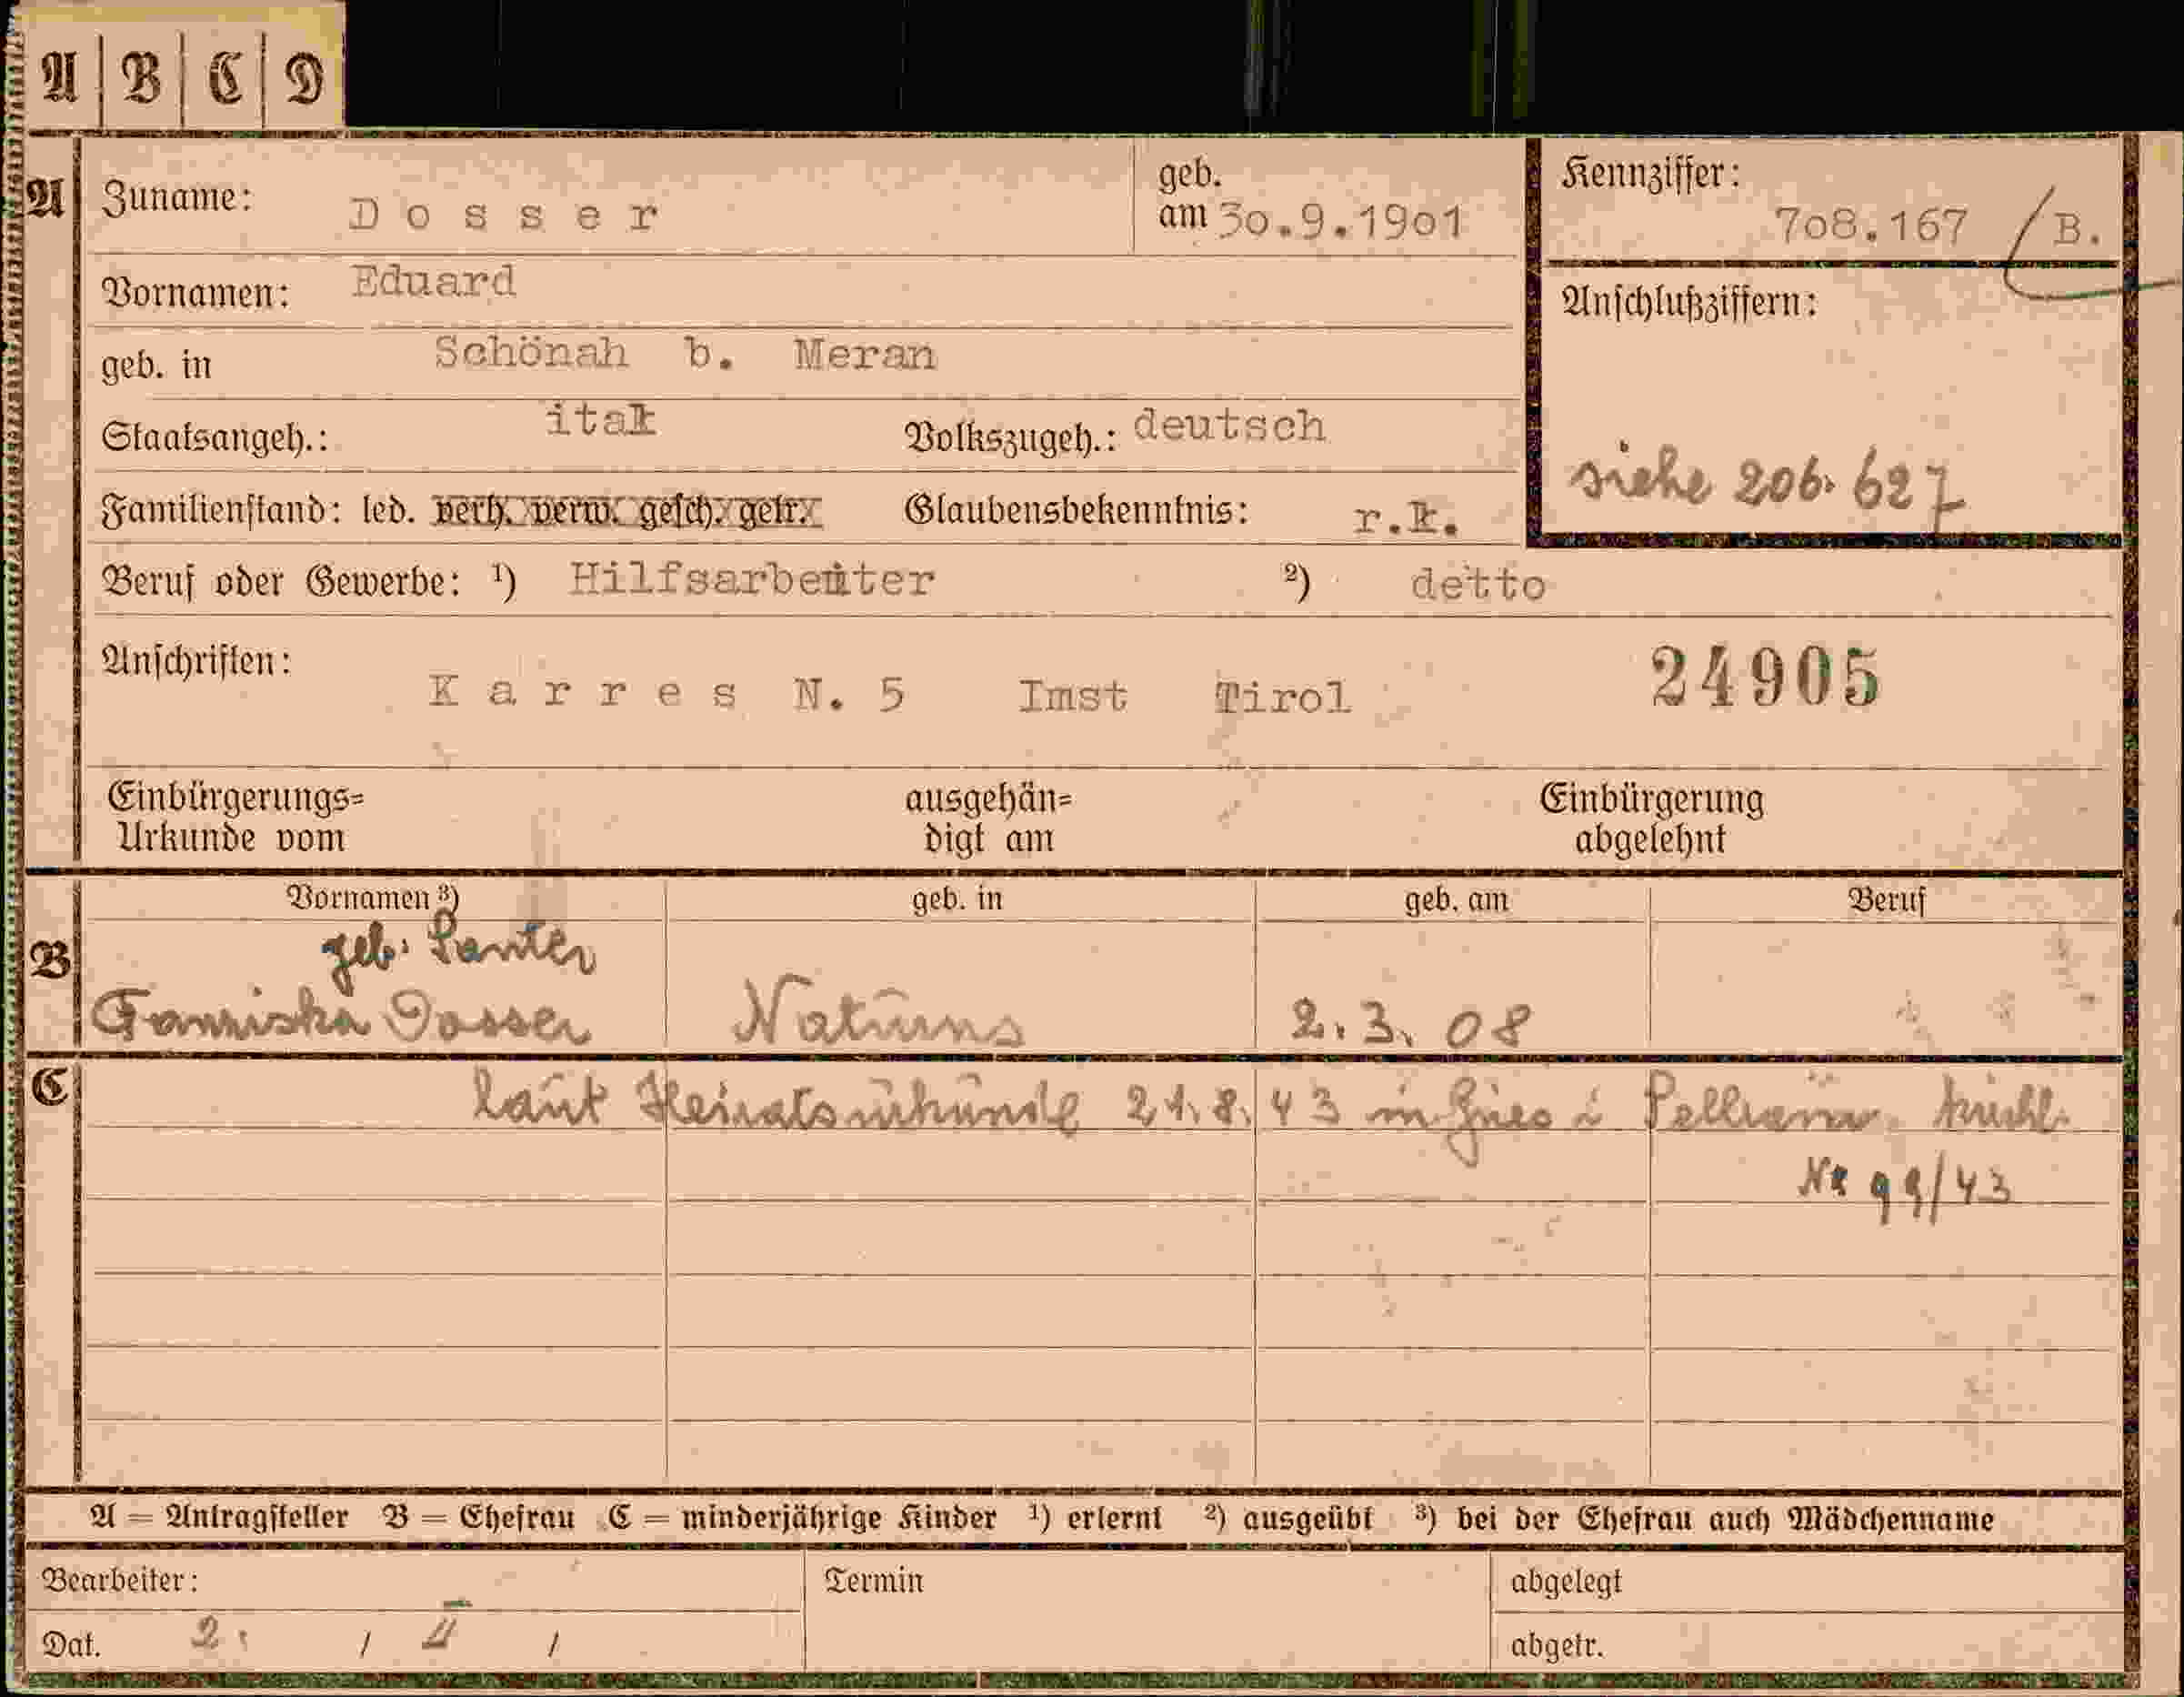 A B C D
A Zuname: Dosser geb. am 30.9.1901 Kennziffer: 708.167 / B.
Vornamen: Eduard Anschlußziffern:
geb. in Schönah b. Meran
Staatsangeh.: ital Volkszugeh.: deutsch siehe 206.627
Familienstand: led. verh. verw. gesch. getr. Glaubensbekenntnis: r.k.
Beruf oder Gewerbe: ¹) Hilfsarbeiter ²) detto
Anschriften: Karres N. 5 Imst Tirol 24905
Einbürgerungs= ausgehän= Einbürgerung
Urkunde vom digt am abgelehnt
Vornamen ³) geb. in geb. am Beruf
B geb. Santer
Dosser Naturns 2.3.08
C laut Heiratsurkunde 21.8.43 in
Nr 99/43
A = Antragsteller B = Ehefrau C = minderjährige Kinder ¹) erlernt ²) ausgeübt ³) bei der Ehefrau auch Mädchenname
Bearbeiter: Termin abgelegt
Dat. 2. / / abgetr.